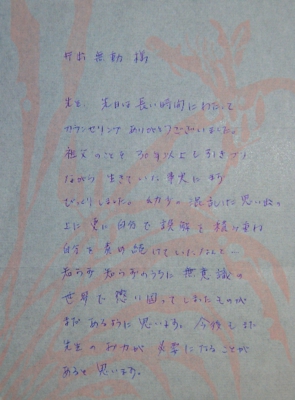 井出 無動 様
先生、先日は長い時間にわたって
カウンセリング ありがとうございました。
祖父のことを 30年以上も引きずり
ながら 生きていた事実に
びっくりしました。 混乱した思いの
上に 更に自分で 誤解を 積み重ね
自分を責め続けていたなんて…
知らず 知らずのうちに 無意識の
世界で 思い困ってしまったものが
まだ あるように 思います。 今後もまた
先生の お力が 必要になることが
あると 思います。